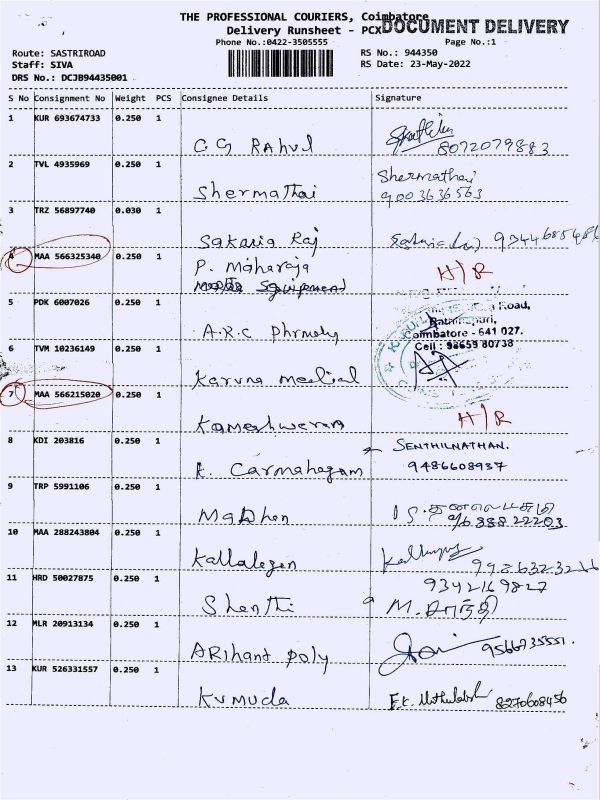 THE PROFESSIONAL COURIERS, Coimbatore
Delivery Runsheet - PCX DOCUMENT DELIVERY
Phone No.:0422-3505555 Page No.:1
Route: SASTRIROAD RS No.: 944350
Staff: SIVA RS Date: 23-May-2022
DRS No.: DCJB94435001
S No Consignment No Weight PCS Consignee Details Signature
1 KUR 693674733 0.250 1
C G Rahul 8072079883
2 TVL 4935969 0.250 1 Shermathai
Shermathai 9003636563
3 TRZ 56897740 0.030 1
Sakaria Raj
4 MAA 566325340 0.250 1 P. Maharaja H/R
5 PDK 6007026 0.250 1 Road,
Coimbatore - 641 027.
A.R.C Phrmaly Cell : 98659 80738
6 TVM 10236149 0.250 1
Karuna medical
7 MAA 566215020 0.250 1 H/R
Kameshwaran
8 KDI 203816 0.250 1 SENTHILNATHAN.
K. Carmahagam 9486608937
9 TRP 5991106 0.250 1
Madhan
10 MAA 288243804 0.250 1
Kallalagan
11 HRD 50027875 0.250 1 9342169827
Shanthi M. சாந்தி
12 MLR 20913134 0.250 1
ARihant poly 9566735551.
13 KUR 526331557 0.250 1
Kumuda 8270608456